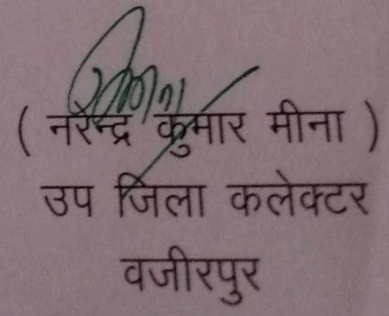 ( नरेन्द्र कुमार मीना )
उप जिला कलेक्टर
वजीरपुर